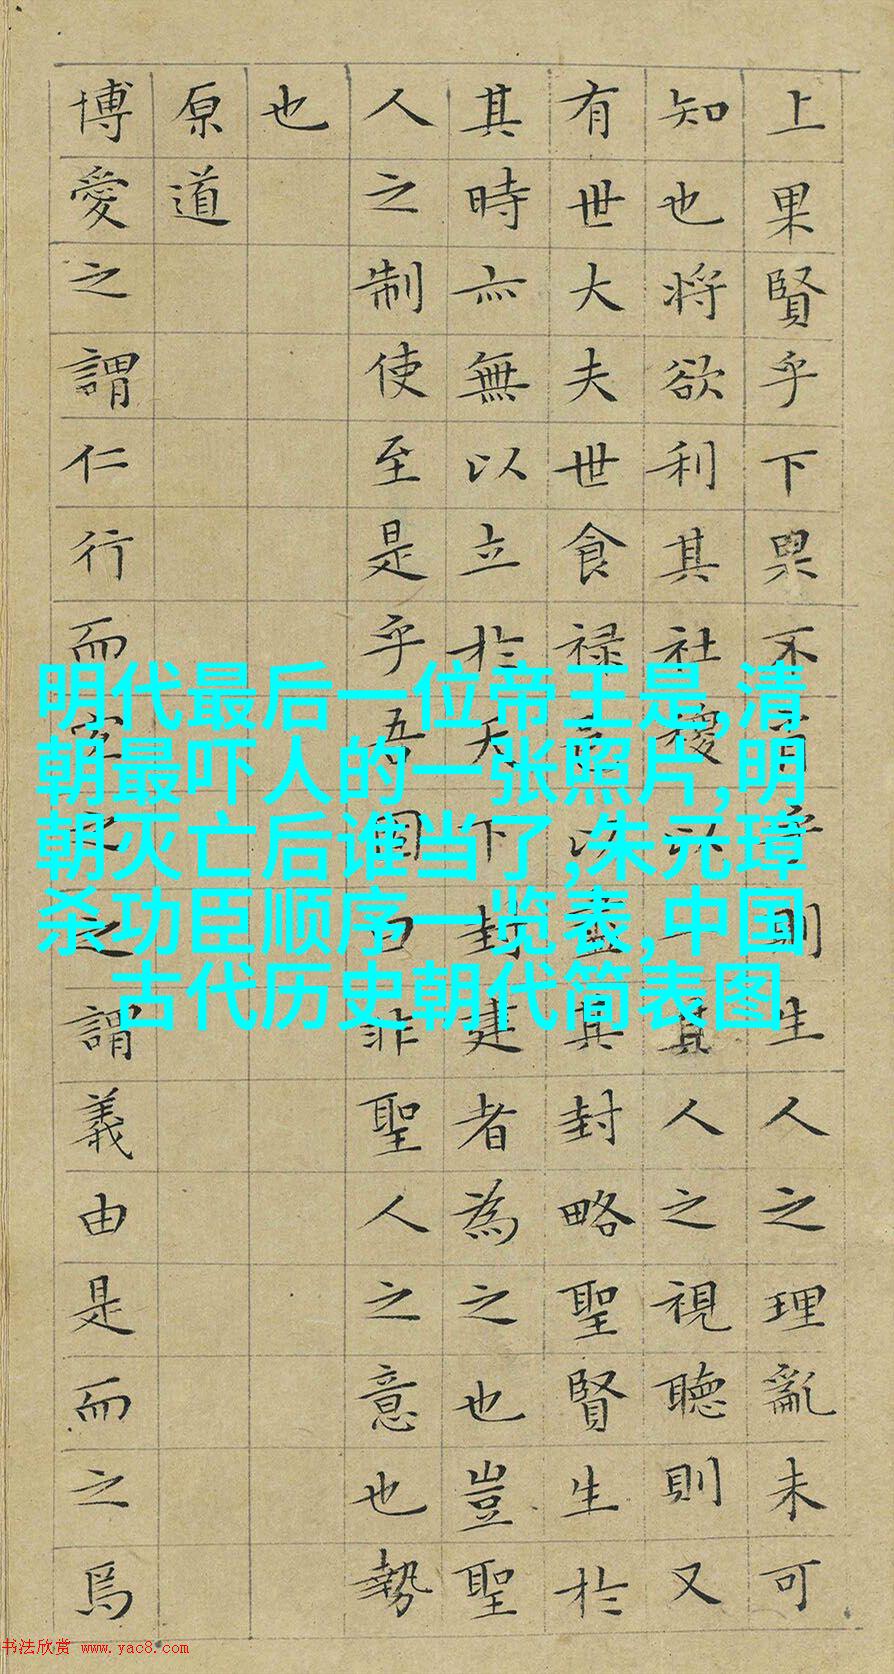 上果賢乎下果不肖乎則生人之理亂未可
知也将欲利其社稷以一其人之視聽則又
有世大夫世食禄邑以盡其封略聖賢生於
其時亦無以立於天下封建者為之也豈聖
人之制使至是乎吾固曰非聖人之意也勢
也
原道
博愛之謂仁行而宜之之謂義由是而之焉
明代最后一位帝王是,清
朝最吓人的一张照片,明
朝灭亡后谁当了,朱元璋
杀功臣顺序一览表,中国
古代历史朝代简表图
书法欣赏 www.yac8.com